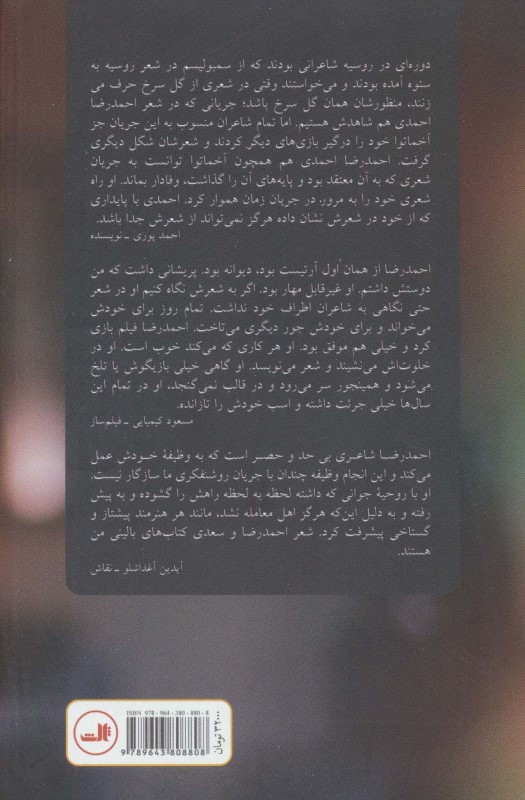 دوره‌ای در روسیه شاعرانی بودند که از سمبولیسم در شعر روسیه به
ستوه آمده بودند و می‌خواستند وقتی در شعری از گل سرخ حرف می
زنند، منظورشان همان گل سرخ باشد؛ جریانی که در شعر احمدرضا
احمدی هم شاهدش هستیم. اما تمام شاعران منسوب به این جریان جز
آخماتوا خود را درگیر بازی‌های دیگر کردند و شعرشان شکل دیگری
گرفت. احمدرضا احمدی هم همچون آخماتوا توانست به جریان
شعری که به آن معتقد بود و پایه‌های آن را گذاشت، وفادار بماند. او راه
شعری خود را به مرور، در جریان زمان هموار کرد. احمدی با پایداری
که از خود در شعرش نشان داده هرگز نمی‌تواند از شعرش جدا باشد.
احمد پوری ـ نویسنده
احمدرضا از همان اول آرتیست بود، دیوانه بود. پریشانی داشت که من
دوستش داشتم. او غیرقابل مهار بود. اگر به شعرش نگاه کنیم او در شعر
حتی نگاهی به شاعران اطراف خود نداشت. تمام روز برای خودش
می‌خواند و برای خودش جور دیگری می‌تاخت. احمدرضا فیلم بازی
کرد و خیلی هم موفق بود. او هر کاری که می‌کند خوب است. او در
خلوت‌اش می‌نشیند و شعر می‌نویسد. او گاهی خیلی بازیگوش یا تلخ
می‌شود و همینجور سر می‌رود و در قالب نمی‌گنجد، او در تمام این
سال‌ها خیلی جرئت داشته و اسب خودش را تازانده.
مسعود کیمیایی ـ فیلم‌ساز
احمدرضا شاعری بی حد و حصر است که به وظیفهٔ خودش عمل
می‌کند و این انجام وظیفه چندان با جریان روشنفکری ما سازگار نیست.
او با روحیهٔ جوانی که داشته لحظه به لحظه راهش را گشوده و به پیش
رفته و به دلیل این‌که هرگز اهل معامله نشد، مانند هر هنرمند پیشتاز و
گستاخی پیشرفت کرد. شعر احمدرضا و سعدی کتاب‌های بالینی من
هستند.
آیدین آغداشلو ـ نقاش
ISBN 978-964-380-880-8
9 789643 808808
۳۲۰۰۰ تومان
ثالث